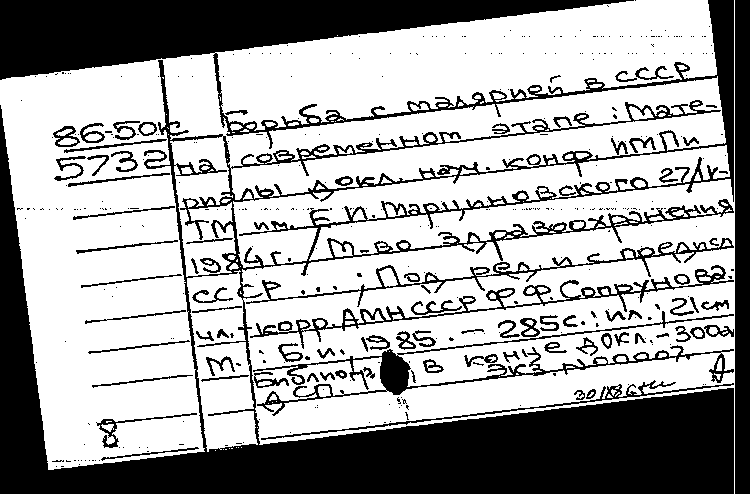 86-50к Борьба с малярией в СССР
5732 на современном этапе : Мате-
риалы докл. науч. конф. ИМПи
ТМ им. Е.И. Марциновского 27/IV-
1984 г. / М-во здравоохранения
СССР ... ; Под ред. и с предисл.
чл.-корр. АМН СССР Ф.Ф. Сопрунова.-
М. : Б.и., 1985. - 285 с. : ил. ; 21 см
Библиогр. в конце докл. - 300
ДСП. Экз. N 00007.
8